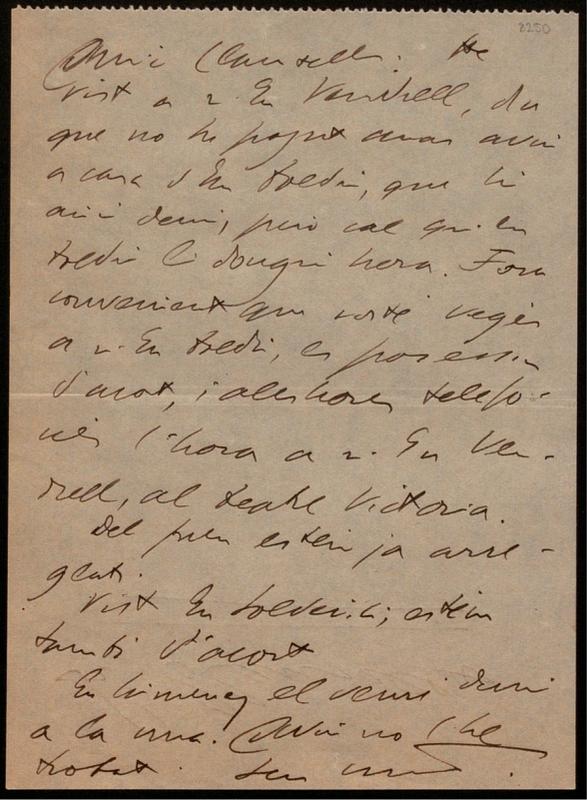 2250
Amic Clausells: He
vist a n'En Vendrell, diu
que no ha pogut anar avui
a casa d'En Toldrà, que hi
anirà demà, però cal que En
Toldrà li dongui hora. Fora
convenient que vostè vegés
a n'En Toldrà, es posessin
d'acort, i aleshores telefo-
nés l'hora a n'En Ven-
drell, al teatre Victoria.
Del preu estem ja arre-
glats.
Vist En Toldrà; estem
també d'acort
En Gimenez el veuré demà
a la una. Avui no l'he
trobat.